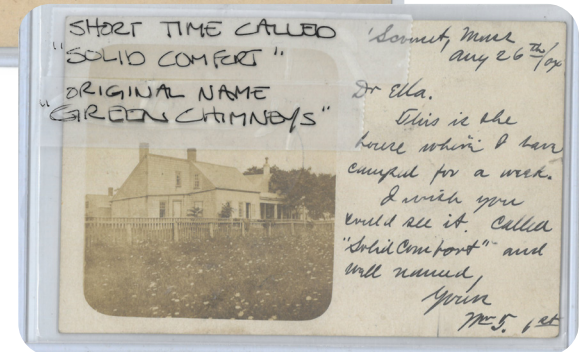 SHORT TIME CALLED
"SOLID COMFORT"
ORIGINAL NAME
"GREEN CHIMNEYS"
Aug 26th/04
Dr Ella.
This is the
house which I have
camped for a week.
I wish you
could see it. Called
"Solid Comfort" and
well named,
Yours